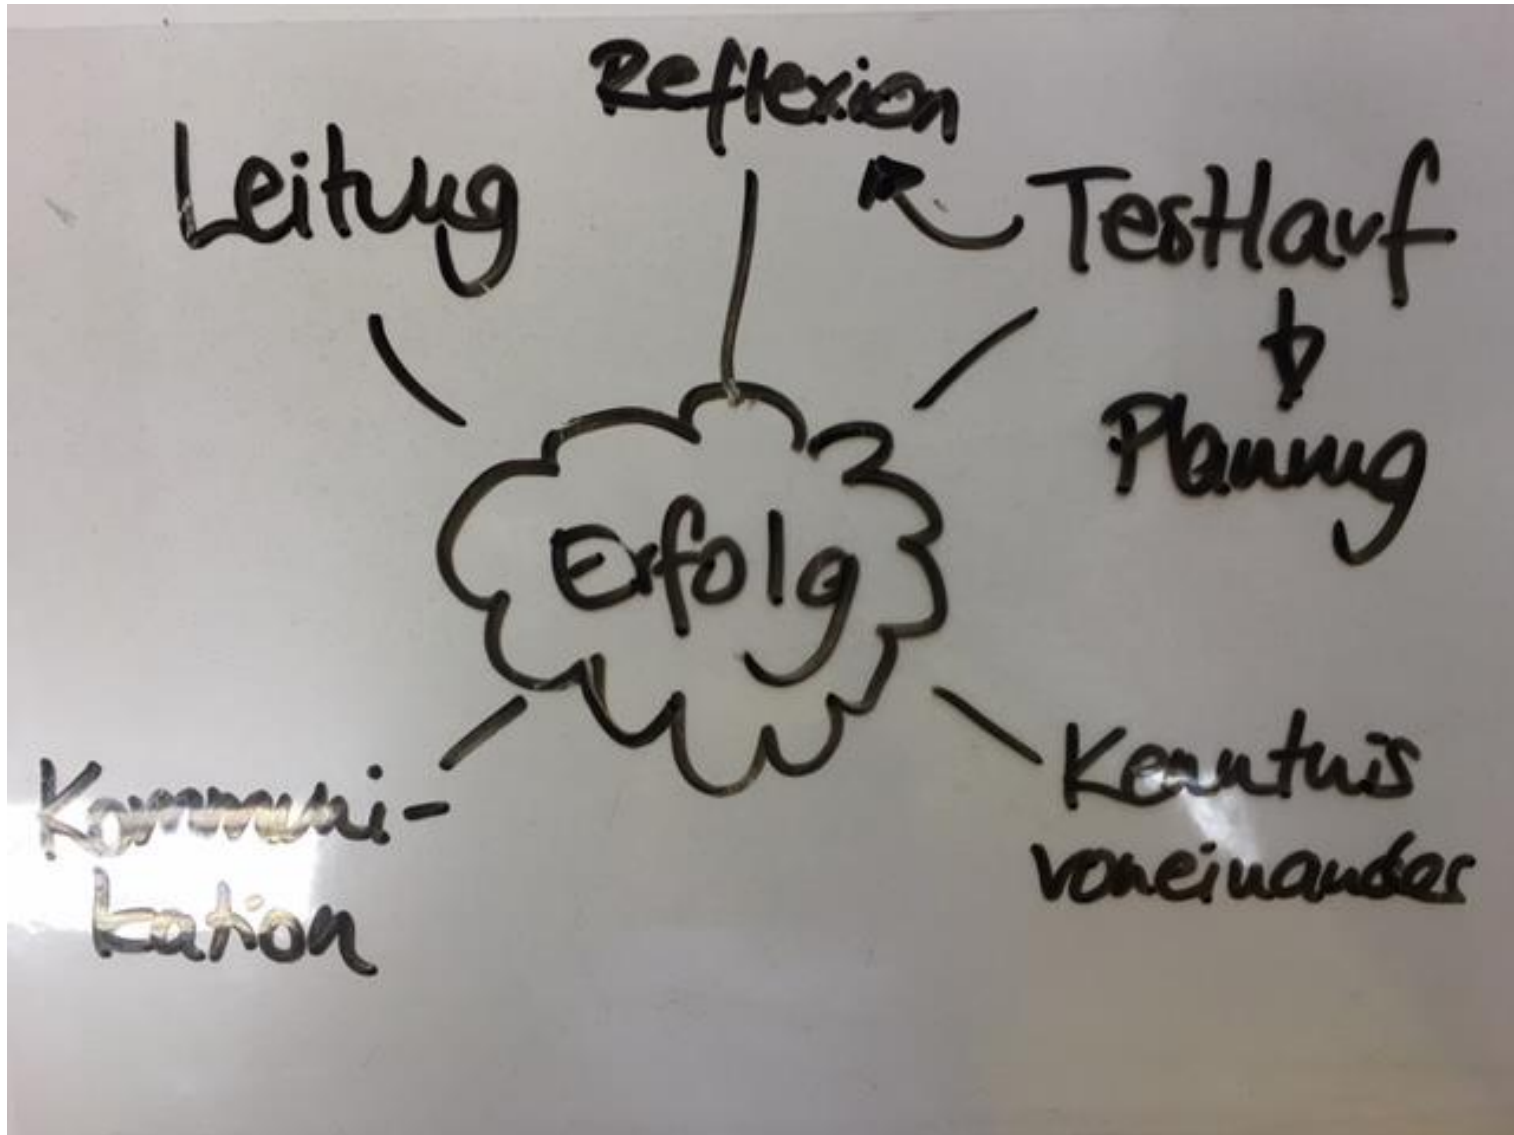 Reflexion
Leitung
Testlauf
Planung
Erfolg
Kommuni-
kation
Kenntnis
voneinander